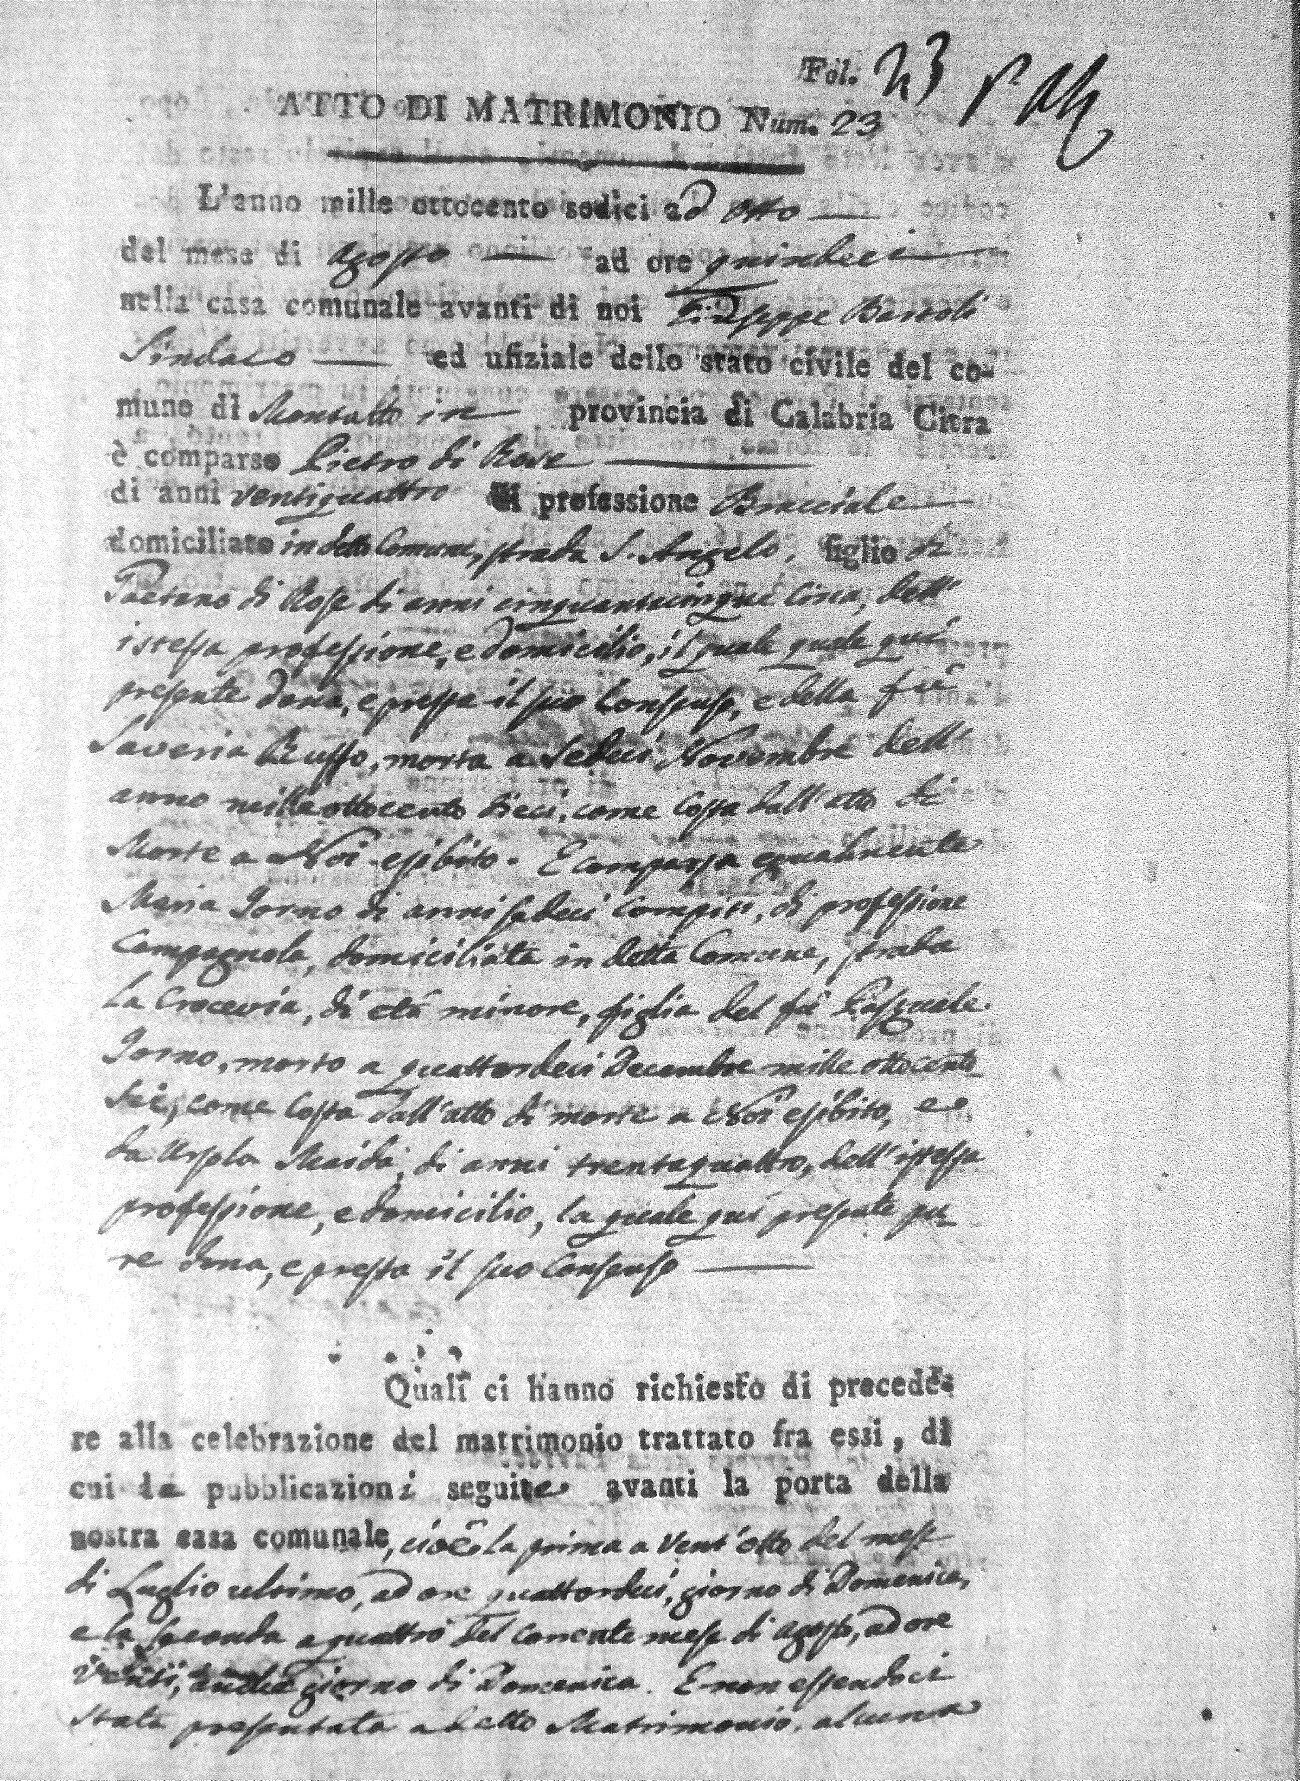 Fol. 23
ATTO DI MATRIMONIO Num. 23
L'anno mille ottocento sedici ad otto
del mese di agosto ad ore quindeci
nella casa comunale avanti di noi Giuseppe
Sindaco ed ufiziale dello stato civile del co-
mune di Montalto in provincia di Calabria Citra
è comparso Pietro di Rose
di anni ventiquattro di professione Bracciale
domiciliato in detto Comune, strada S. Angelo, figlio di
Gaetano di Rose di anni cinquantacinque circa, dell'
istessa professione, e domicilio, il quale quale quì
presente dona, e pressa il suo consenso, e della fù
Saveria Ruffo, morta a sedeci Novembre dell'
anno mille ottocento dieci, come costa dall'atto di
Morte a Noi esibito. E comparsa egualmente
Maria Iorno di anni sedeci compiti, di professione
Campagnola, domiciliata in detta Comune, strada
La Crocevia, di età minore, figlia del fù Pasquale
Iorno, morto a quattordeci Decembre mille ottocento
sei, come costa dall'atto di morte a Noi esibito, e
da Ursola Maida, di anni trentaquattro, dell'istessa
professione, e domicilio, la quale quì presente pu-
re dona, e pressa il suo consenso
Quali ci hanno richiesto di procede-
re alla celebrazione del matrimonio trattato fra essi, di
cui le pubblicazioni seguite avanti la porta della
nostra casa comunale, cioè la prima a vent'otto del mese
di Luglio ultimo, ad ore quattordeci, giorno di Domenica,
e la seconda a quattro del corrente mese di agosto, ad ore
venti, anche giorno di Domenica. E non essendoci
stata presentata a detto Matrimonio, alcuna